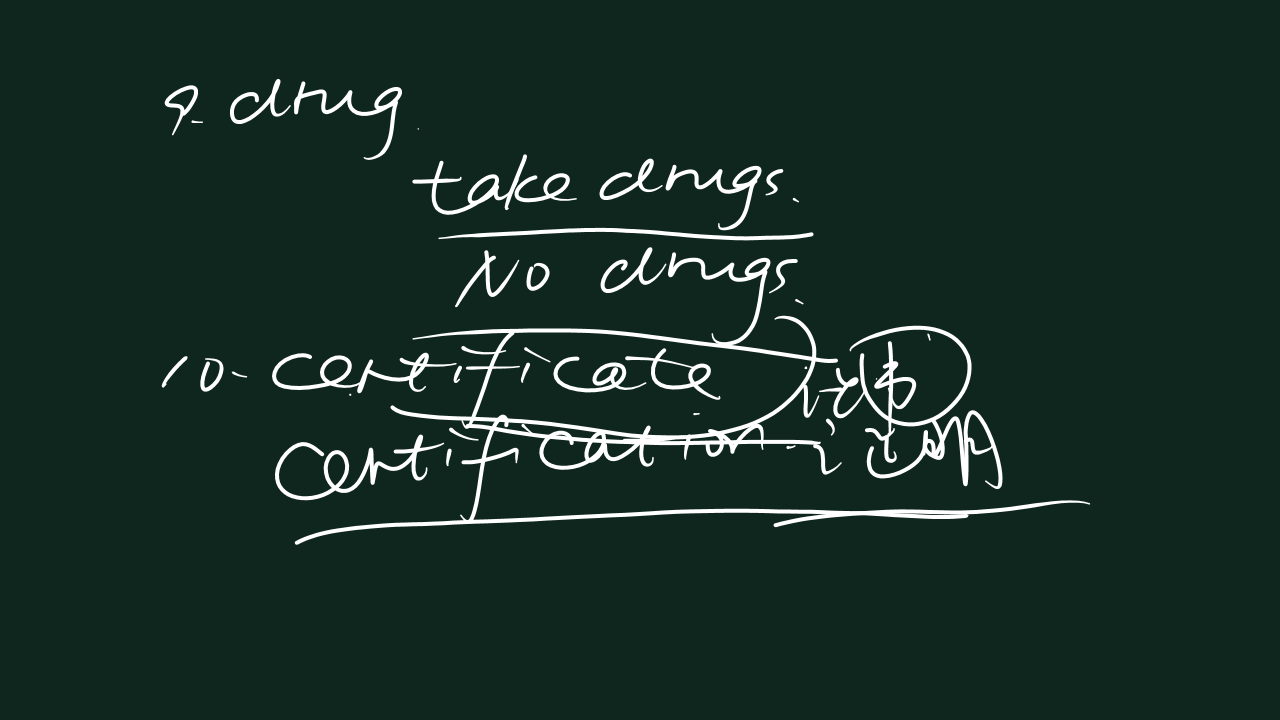 9. drug
take drugs.
No drugs.
10. certificate 证书
certification. 证明